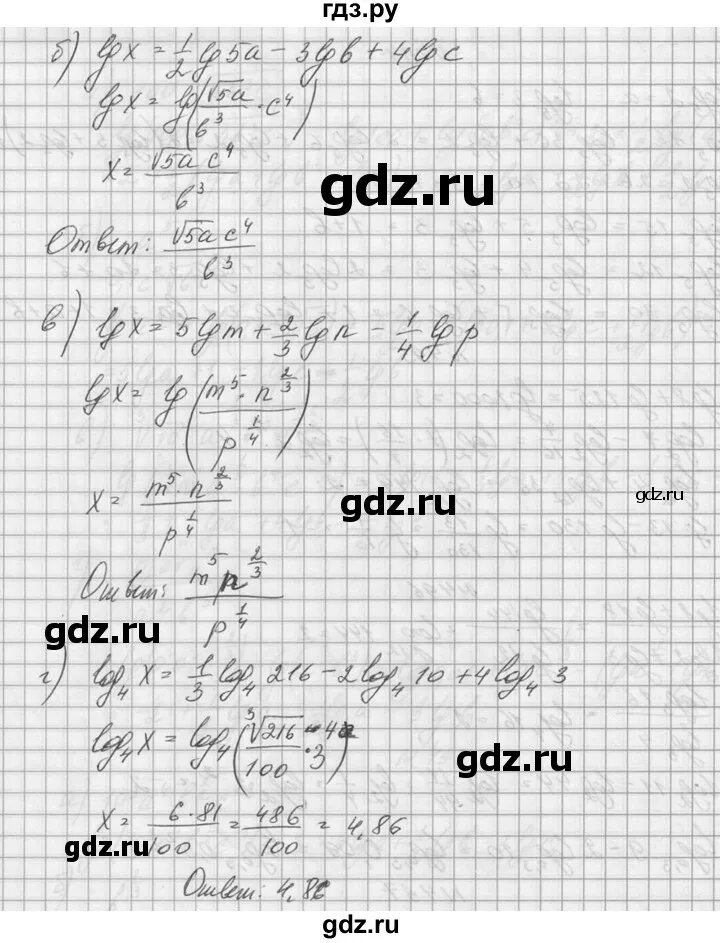 гдз.ру
б) lg x = 1/2 lg 5a − 3 lg b + 4 lg c
lg x = lg (√5a / b³ · c⁴)
x = √5a c⁴ / b³
gdz.ru
Ответ: √5a c⁴ / b³
в) lg x = 5 lg m + 2/3 lg n − 1/4 lg p
lg x = lg (m⁵ · n^(2/3) / p^(1/4))
x = m⁵ · n^(2/3) / p^(1/4)
gdz.ru
gdz.ru
Ответ: m⁵ n^(2/3) / p^(1/4)
gdz.ru
г) log₄ x = 1/3 log₄ 216 − 2 log₄ 10 + 4 log₄ 3
log₄ x = log₄ (³√216 / 100 · 3⁴)
gdz.ru
x = 6·81 / 100 = 486 / 100 = 4,86
gdz.ru
Ответ: 4,86
gdz.ru